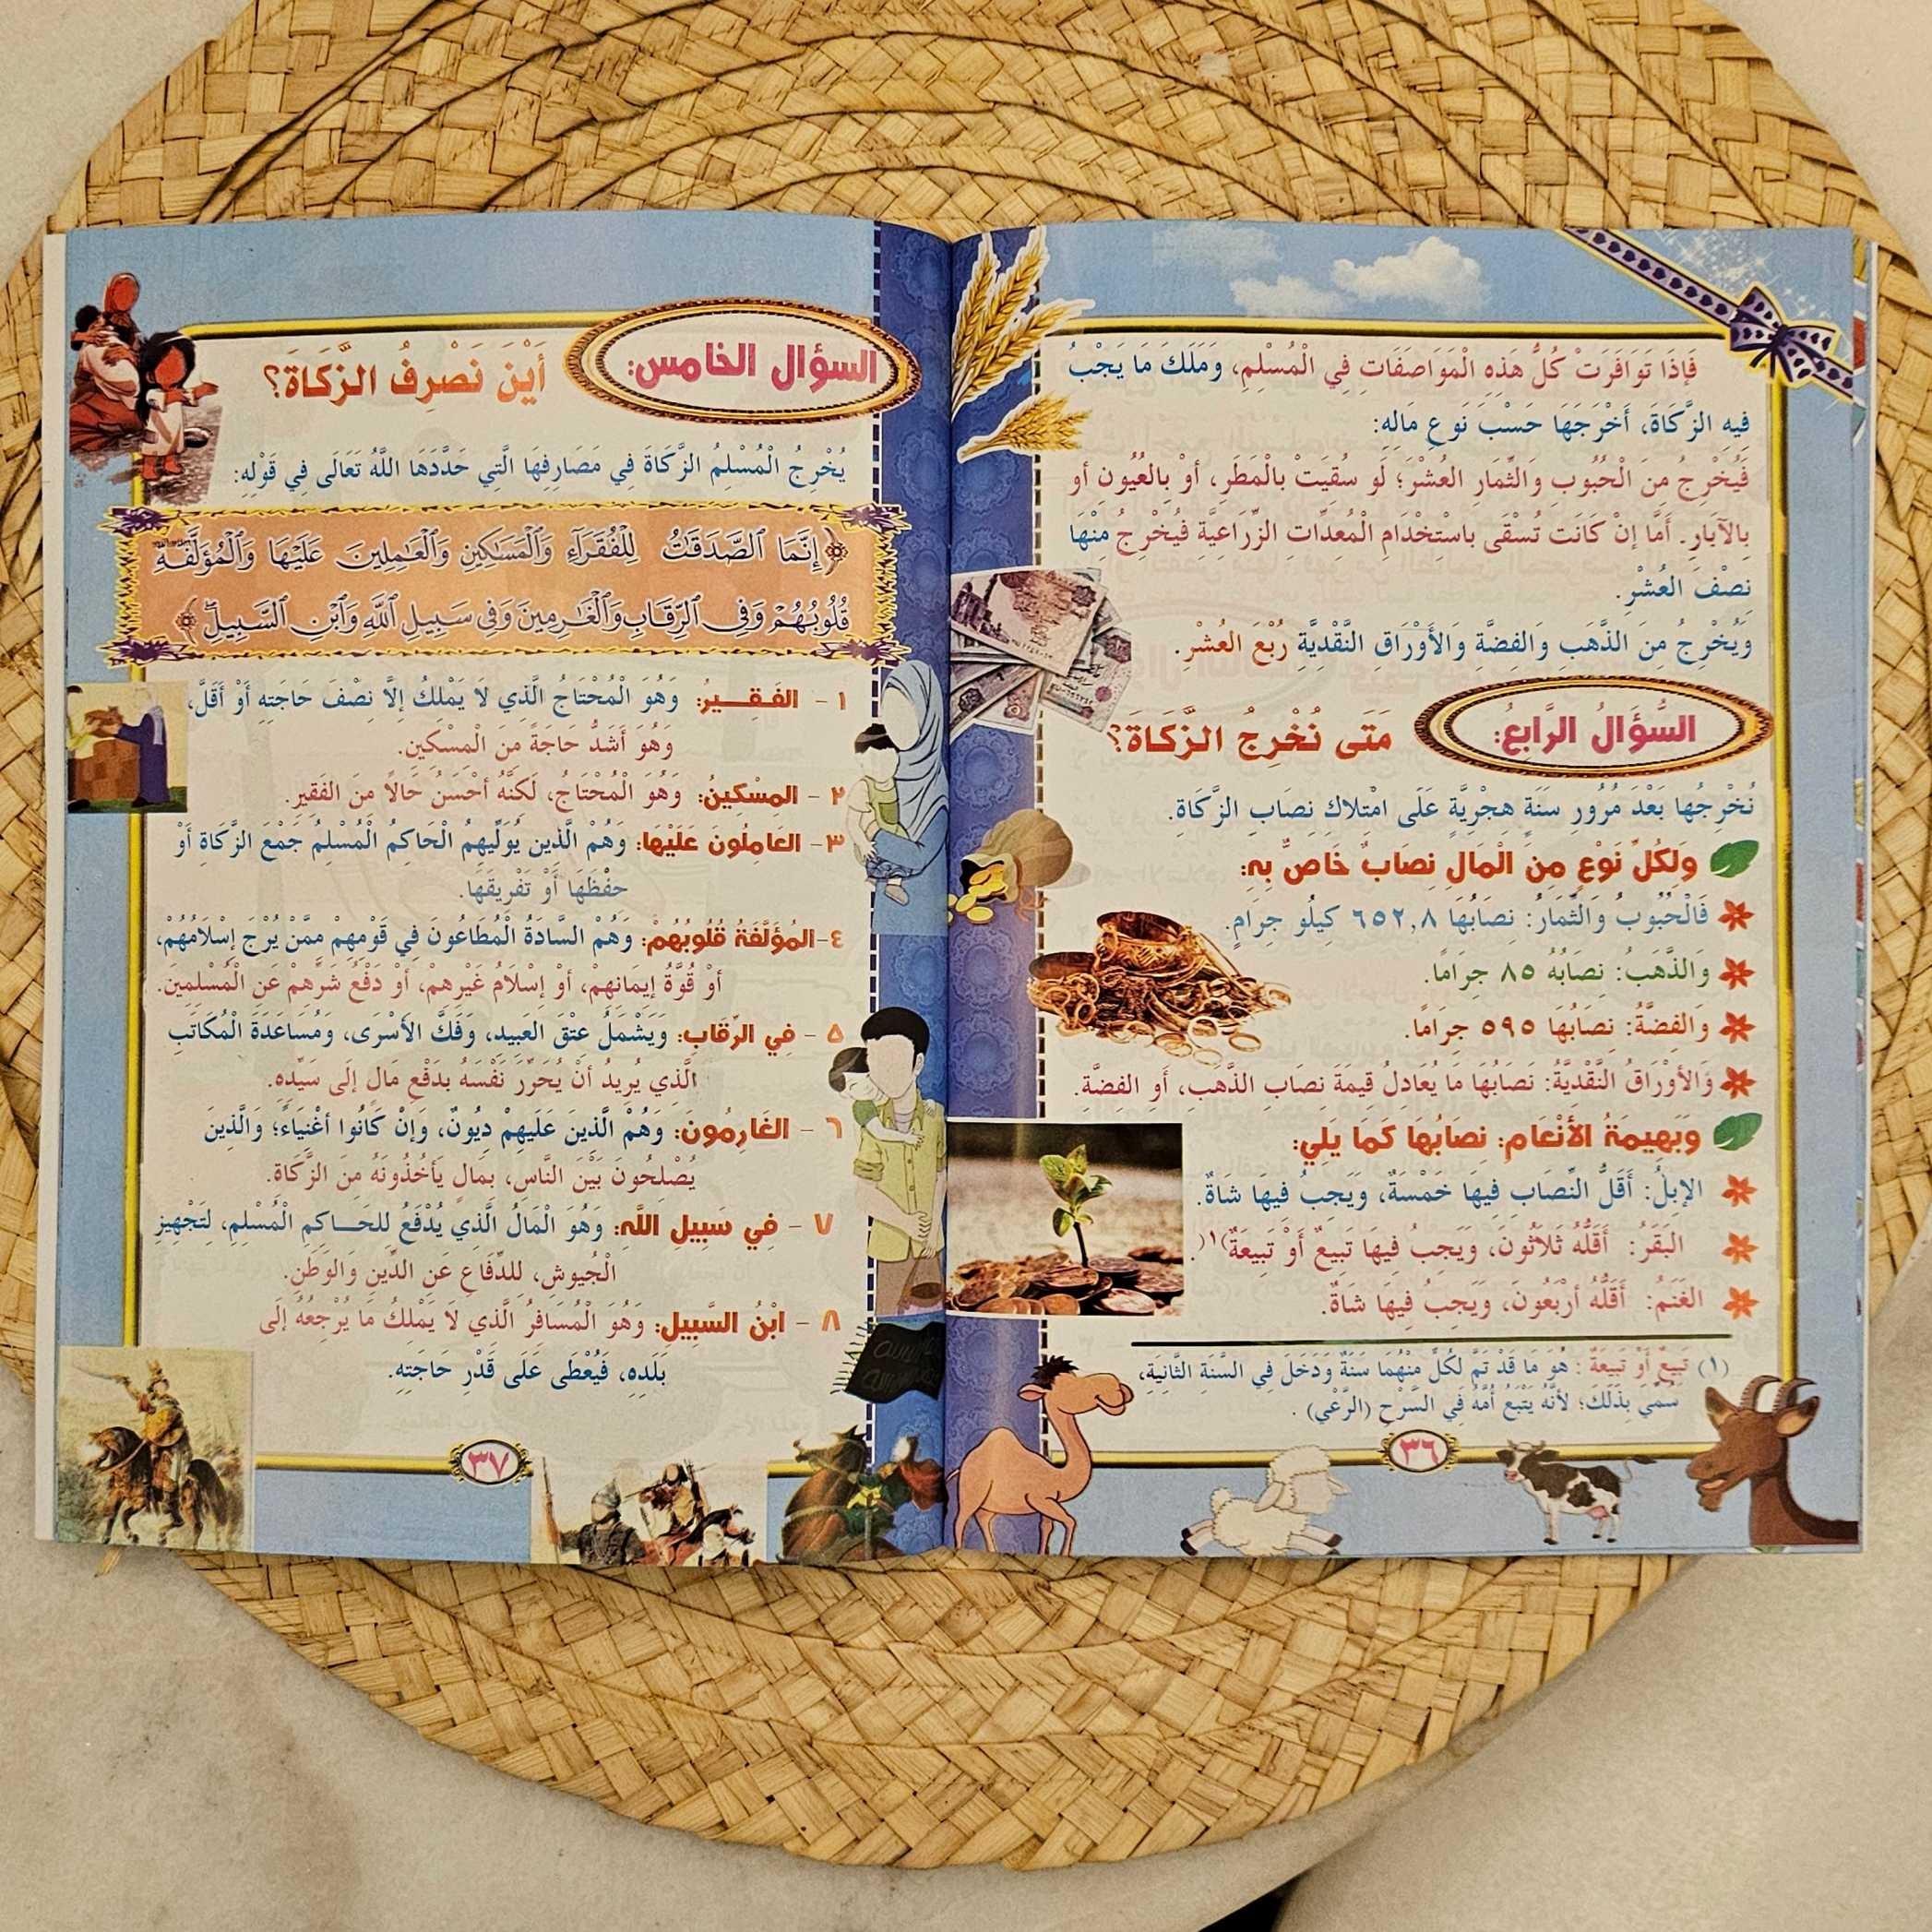 فَإِذَا تَوَافَرَتْ كُلُّ هَذِهِ الْمَوَاصَفَاتِ فِي الْمُسْلِمِ، وَمَلَكَ مَا يَجْبُ
فِيهِ الزَّكَاةَ، أَخْرَجَهَا حَسْبَ نَوعِ مَالِهِ:
فَيُخْرِجُ مِنَ الْحُبُوبِ وَالثِّمَارِ العُشْرَ؛ لَو سُقِيَتْ بِالْمَطَرِ، أَوْ بِالعُيُونِ أَو
بِالآبَارِ. أَمَّا إِنْ كَانَت تُسْقَى بِاسْتِخْدَامِ الْمُعِدَّاتِ الزِّرَاعِيَّةِ فَيُخْرِجُ مِنْهَا
نِصْفَ العُشْرِ.
وَيُخْرِجُ مِنَ الذَّهَبِ وَالفِضَّةِ وَالأَوْرَاقِ النَّقْدِيَّةِ رُبْعَ العُشْرِ.
السُّؤَالُ الرَّابِعُ: مَتَى نُخْرِجُ الزَّكَاةَ؟
نُخْرِجُها بَعْدَ مُرُورِ سَنَةٍ هِجْرِيَّةٍ عَلَى امْتِلاكِ نِصَابِ الزَّكَاةِ.
وَلِكُلِّ نَوْعٍ مِنَ الْمَالِ نِصَابٌ خَاصٌّ بِهِ:
فَالْحُبُوبُ وَالثِّمَارُ: نِصَابُهَا ٦٥٢,٨ كِيلُو جِرَامٍ.
وَالذَّهَبُ: نِصَابُهُ ٨٥ جِرَامًا.
وَالفِضَّةُ: نِصَابُهَا ٥٩٥ جِرَامًا.
وَالأَوْرَاقُ النَّقْدِيَّةُ: نَصَابُهَا مَا يُعَادِلُ قِيمَةَ نِصَابِ الذَّهَبِ، أَوِ الفِضَّةِ.
وَبَهِيمَةُ الأَنْعَامِ: نِصَابُهَا كَمَا يَلِي:
الإِبِلُ: أَقَلُّ النِّصَابِ فِيهَا خَمْسَةٌ، وَيَجِبُ فِيهَا شَاةٌ.
البَقَرُ: أَقَلُّهُ ثَلَاثُونَ، وَيَجِبُ فِيهَا تَبِيعٌ أَوْ تَبِيعَةٌ)١(.
الغَنَمُ: أَقَلُّهُ أَرْبَعُونَ، وَيَجِبُ فِيهَا شَاةٌ.
(١) تَبِيعٌ أَوْ تَبِيعَةٌ : هُوَ مَا قَدْ تَمَّ لِكُلٍّ مِنْهُمَا سَنَةٌ وَدَخَلَ فِي السَّنَةِ الثَّانِيَةِ،
سُمِّيَ بِذَلِكَ؛ لأَنَّهُ يَتْبَعُ أُمَّهُ فِي السَّرْحِ (الرَّعْي) .
٣٦
السؤال الخامس: أَيْنَ نَصْرِفُ الزَّكَاةَ؟
يُخْرِجُ الْمُسْلِمُ الزَّكَاةَ فِي مَصَارِفِهَا الَّتِي حَدَّدَهَا اللَّهُ تَعَالَى فِي قَوْلِهِ:
﴿إِنَّمَا ٱلصَّدَقَٰتُ لِلْفُقَرَآءِ وَٱلْمَسَٰكِينِ وَٱلْعَٰمِلِينَ عَلَيْهَا وَٱلْمُؤَلَّفَةِ
قُلُوبُهُمْ وَفِى ٱلرِّقَابِ وَٱلْغَٰرِمِينَ وَفِى سَبِيلِ ٱللَّهِ وَٱبْنِ ٱلسَّبِيلِ﴾
١ - الفَقِيرُ: وَهُوَ الْمُحْتَاجُ الَّذِي لَا يَمْلِكُ إِلَّا نِصْفَ حَاجَتِهِ أَوْ أَقَلَّ،
وَهُوَ أَشَدُّ حَاجَةً مِنَ الْمِسْكِينِ.
٢ - المِسْكِينُ: وَهُوَ الْمُحْتَاجُ، لَكِنَّهُ أَحْسَنُ حَالاً مِنَ الفَقِيرِ.
٣- العَامِلُونَ عَلَيْهَا: وَهُمُ الَّذِينَ يُوَلِّيهِمُ الْحَاكِمُ الْمُسْلِمُ جَمْعَ الزَّكَاةِ أَوْ
حِفْظَهَا أَوْ تَفْرِيقَهَا.
٤-المُؤَلَّفَةُ قُلُوبُهُمْ: وَهُم السَّادَةُ الْمُطَاعُونَ فِي قَوْمِهِم مِمَّنْ يُرْجَ إِسْلَامُهُمْ،
أَوْ قُوَّةُ إِيمَانِهِمْ، أَو إِسْلَامُ غَيْرِهِمْ، أَو دَفْعُ شَرِّهِمْ عَنِ الْمُسْلِمِينَ.
٥ - فِي الرِّقَابِ: وَيَشْمَلُ عِتْقَ العَبِيدِ، وَفَكَّ الأَسْرَى، وَمُسَاعَدَةَ الْمُكَاتَبِ
الَّذِي يُرِيدُ أَنْ يُحَرِّرَ نَفْسَهُ بِدَفْعِ مَالٍ إِلَى سَيِّدِهِ.
٦ - الغَارِمُونَ: وَهُمْ الَّذِينَ عَلَيهِمْ دِيُونٌ، وَإِنْ كَانُوا أَغْنِيَاءً؛ وَالَّذِينَ
يُصْلِحُونَ بَيْنَ النَّاسِ، بِمَالٍ يَأْخُذُونَهُ مِنَ الزَّكَاةِ.
٧ - فِي سَبِيلِ اللَّهِ: وَهُوَ الْمَالُ الَّذِي يُدْفَعُ لِلحَاكِمِ الْمُسْلِمِ، لِتَجْهِيزِ
الْجُيوشِ، لِلدِّفَاعِ عَنِ الدِّينِ وَالوَطَنِ.
٨ - ابْنُ السَّبِيلِ: وَهُوَ الْمُسَافِرُ الَّذِي لَا يَمْلِكُ مَا يُرْجِعُهُ إِلَى
بَلَدِهِ، فَيُعْطَى عَلَى قَدْرِ حَاجَتِهِ.
٣٧